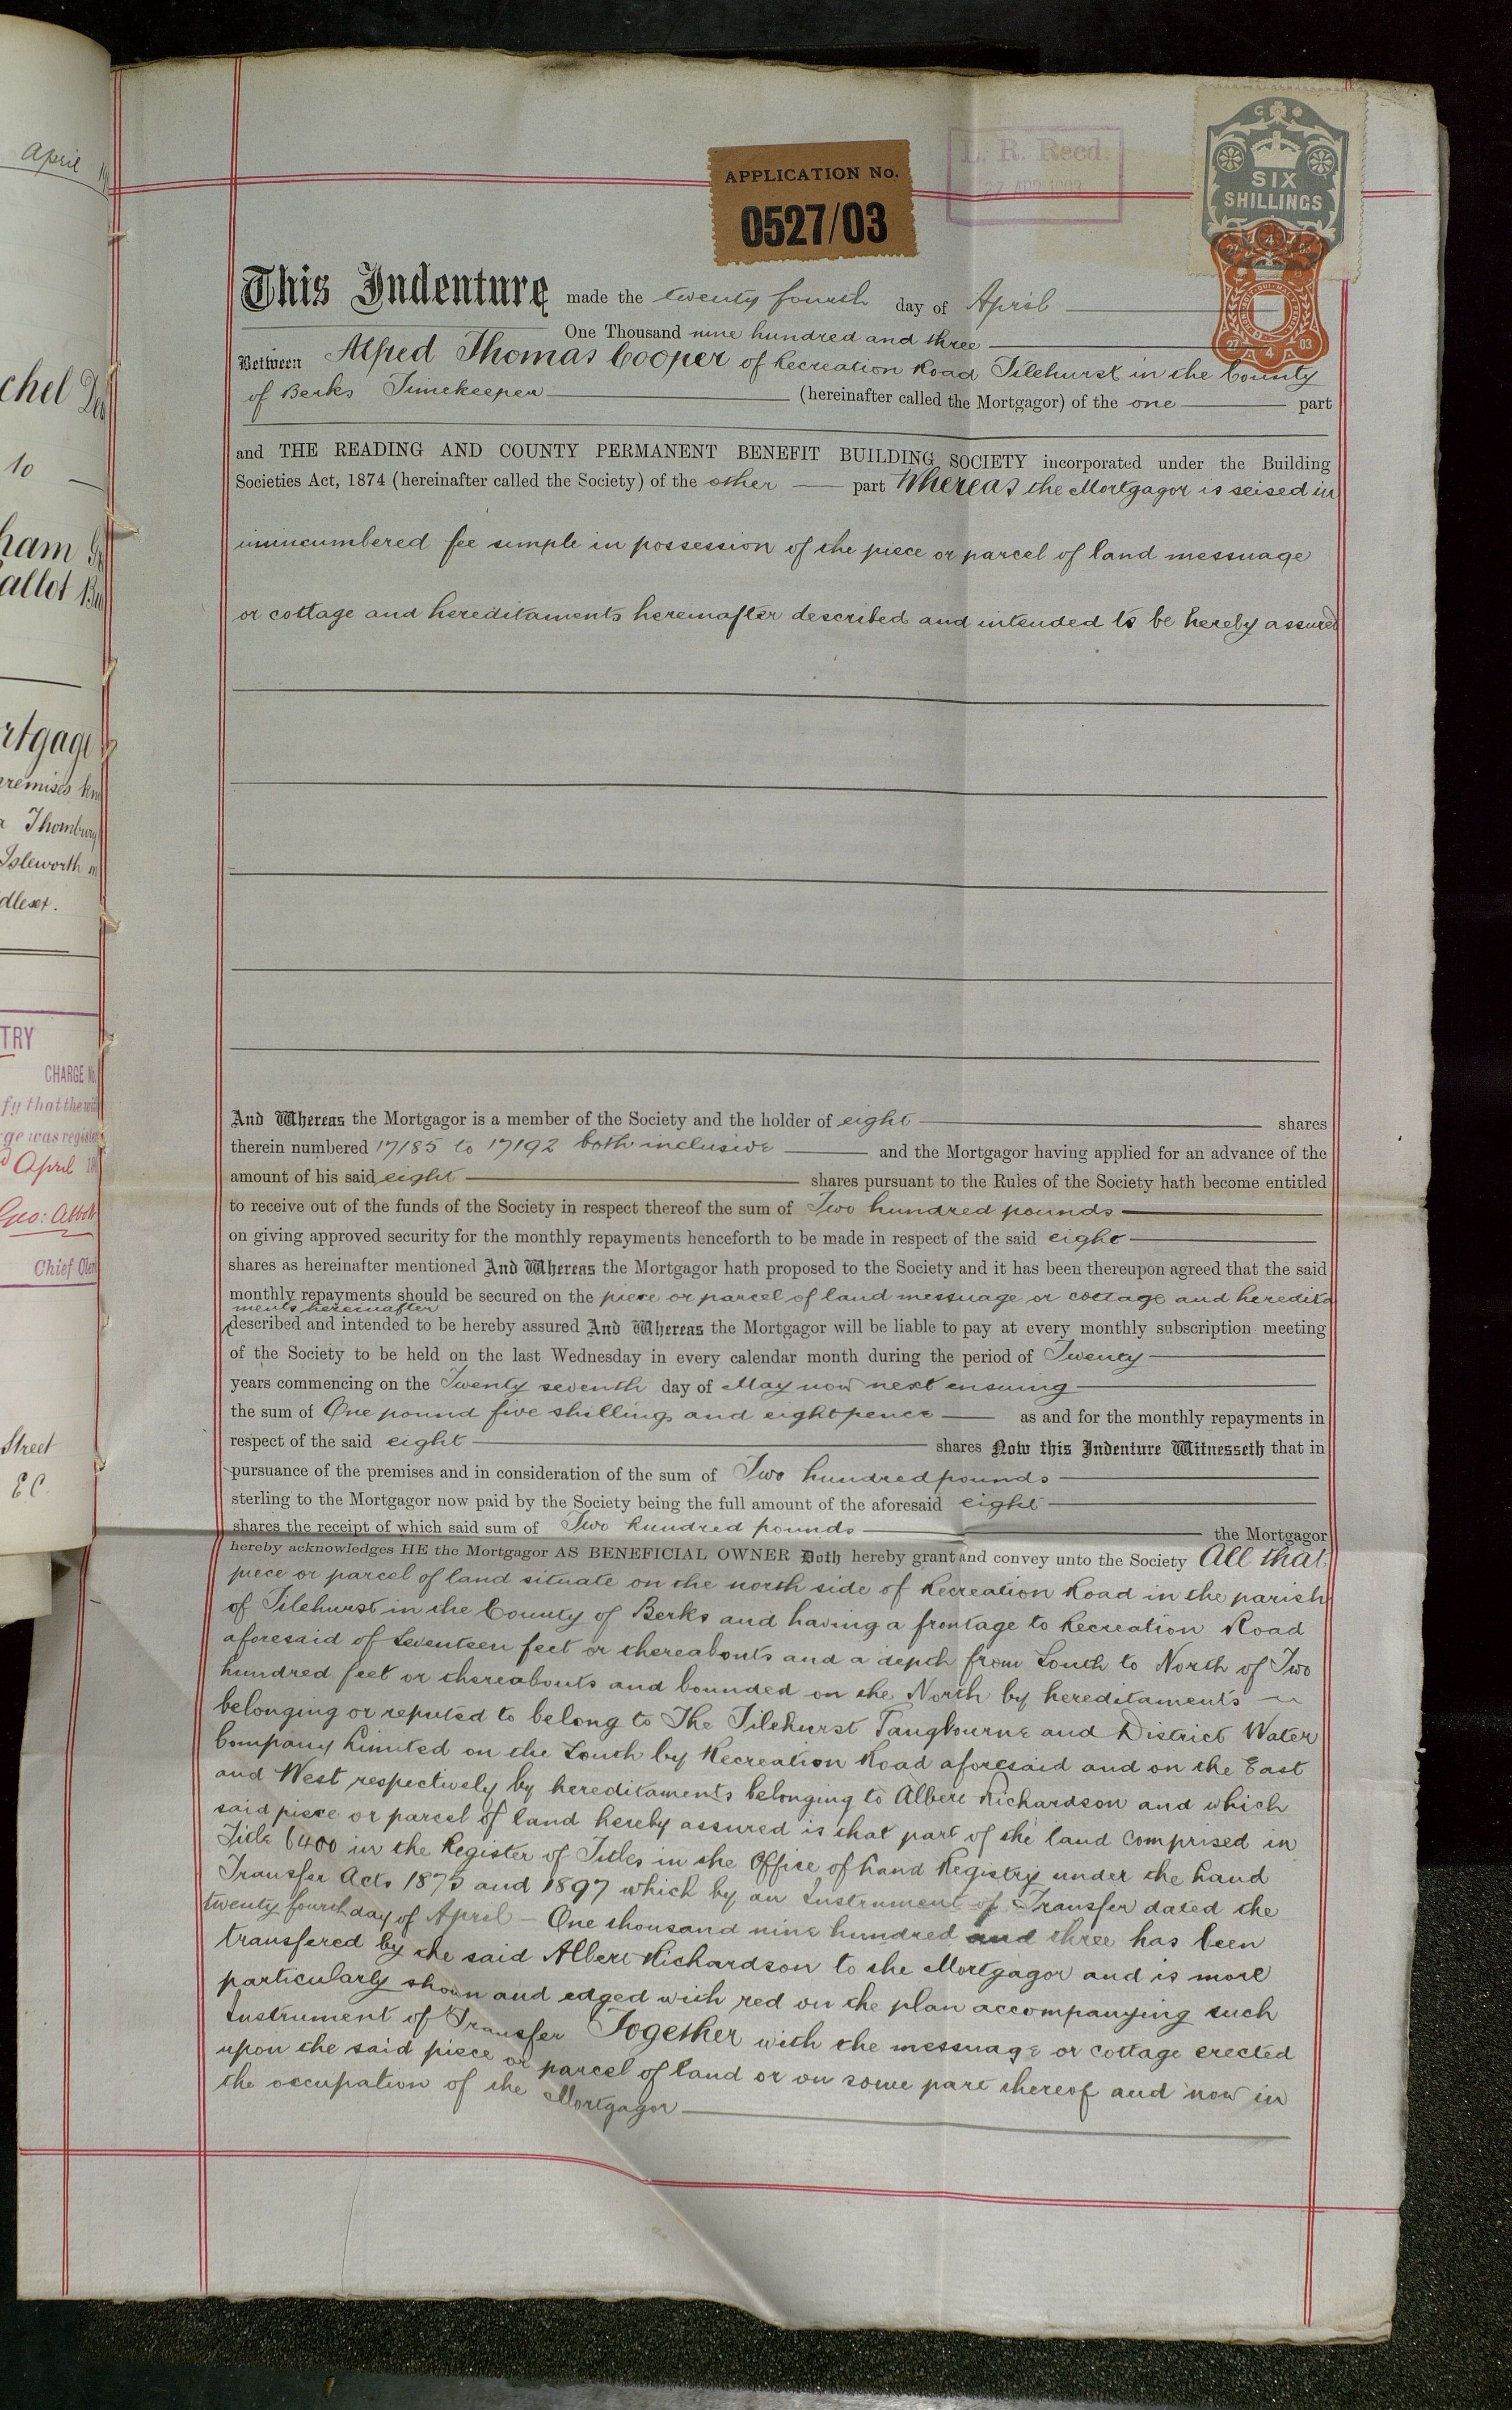 April
chel
to
ham
allot
rtgage
premises
Thornbury
Isleworth
dlesex.
TRY
CHARGE No.
fy that the
ge was
April
Geo: Abbott
Chief Clerk
Street
E C.
APPLICATION No.
0527/03
L. R. Recd.
27 APR 1903
SIX
SHILLINGS
27 4 03
27 4 03
This Indenture made the twenty fourth day of April
One Thousand nine hundred and three
Between Alfred Thomas Cooper of Recreation Road Tilehurst in the County
of Berks Timekeeper (hereinafter called the Mortgagor) of the one part
and THE READING AND COUNTY PERMANENT BENEFIT BUILDING SOCIETY incorporated under the Building
Societies Act, 1874 (hereinafter called the Society) of the other part Whereas the Mortgagor is seised in
unincumbered fee simple in possession of the piece or parcel of land messuage
or cottage and hereditaments hereinafter described and intended to be hereby assured
And Whereas the Mortgagor is a member of the Society and the holder of eight shares
therein numbered 17185 to 17192 both inclusive and the Mortgagor having applied for an advance of the
amount of his said eight shares pursuant to the Rules of the Society hath become entitled
to receive out of the funds of the Society in respect thereof the sum of Two hundred pounds
on giving approved security for the monthly repayments henceforth to be made in respect of the said eight
shares as hereinafter mentioned And Whereas the Mortgagor hath proposed to the Society and it has been thereupon agreed that the said
monthly repayments should be secured on the piece or parcel of land messuage or cottage and heredita
ments hereinafter
described and intended to be hereby assured And Whereas the Mortgagor will be liable to pay at every monthly subscription meeting
of the Society to be held on the last Wednesday in every calendar month during the period of Twenty
years commencing on the Twenty seventh day of May now next ensuing
the sum of One pound five shillings and eightpence as and for the monthly repayments in
respect of the said eight shares Now this Indenture Witnesseth that in
pursuance of the premises and in consideration of the sum of Two hundred pounds
sterling to the Mortgagor now paid by the Society being the full amount of the aforesaid eight
shares the receipt of which said sum of Two hundred pounds the Mortgagor
hereby acknowledges HE the Mortgagor AS BENEFICIAL OWNER Doth hereby grant and convey unto the Society All that
piece or parcel of land situate on the north side of Recreation Road in the parish
of Tilehurst in the County of Berks and having a frontage to Recreation Road
aforesaid of Seventeen feet or thereabouts and a depth from South to North of Two
hundred feet or thereabouts and bounded on the North by hereditaments
belonging or reputed to belong to The Tilehurst Pangbourne and District Water
Company Limited on the South by Recreation Road aforesaid and on the East
and West respectively by hereditaments belonging to Albert Richardson and which
said piece or parcel of land hereby assured is that part of the land comprised in
Title 6400 in the Register of Titles in the Office of Land Registry under the Land
Transfer Acts 1875 and 1897 which by an Instrument of Transfer dated the
twenty fourth day of April – One thousand nine hundred and three has been
transfered by the said Albert Richardson to the Mortgagor and is more
particularly shown and edged with red on the plan accompanying such
Instrument of Transfer Together with the messuage or cottage erected
upon the said piece or parcel of land or on some part thereof and now in
the occupation of the Mortgagor